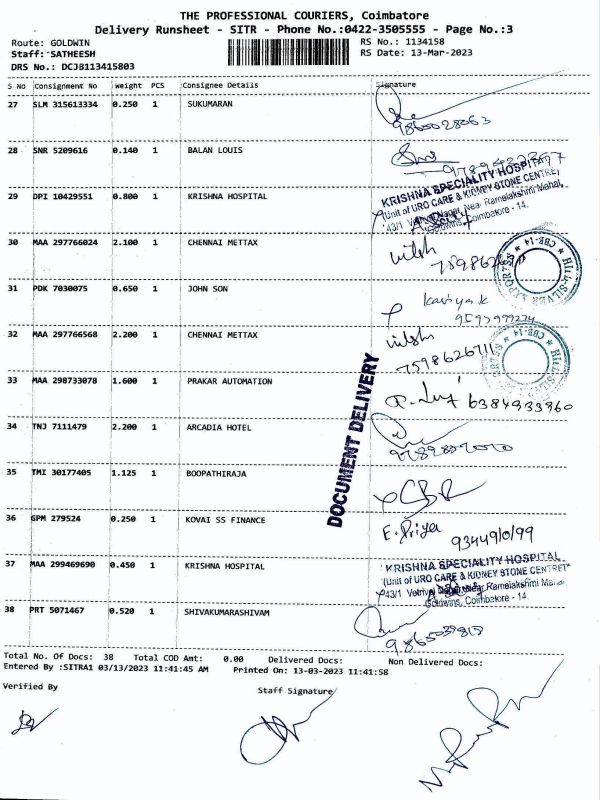 THE PROFESSIONAL COURIERS, Coimbatore
Delivery Runsheet - SITR - Phone No.:0422-3505555 - Page No.:3
Route: GOLDWIN
RS No.: 1134158
Staff: SATHEESH
RS Date: 13-Mar-2023
DRS No.: DCJB113415803
S No Consignment No Weight PCS Consignee Details Signature
27 SLM 315613334 0.250 1 SUKUMARAN
28 SNR 5209616 0.140 1 BALAN LOUIS
29 DPI 10429551 0.800 1 KRISHNA HOSPITAL
KRISHNA SPECIALITY HOSPITAL
(Unit of URO CARE & KIDNEY STONE CENTRE)
43/1 Vetrivel Nagar, Near Ramalakshmi Mahal,
Goldwins, Coimbatore - 14.
30 MAA 297766024 2.100 1 CHENNAI METTAX
HILL-SILVER EXPORTERS ★ CBE-14 ★
31 PDK 7030075 0.650 1 JOHN SON
32 MAA 297766568 2.200 1 CHENNAI METTAX
7598626711
33 MAA 298733078 1.600 1 PRAKAR AUTOMATION
6384933960
34 TNJ 7111479 2.200 1 ARCADIA HOTEL
DOCUMENT DELIVERY
35 TMI 30177405 1.125 1 BOOPATHIRAJA
36 GPM 279524 0.250 1 KOVAI SS FINANCE
E. Priya
37 MAA 299469690 0.450 1 KRISHNA HOSPITAL
KRISHNA SPECIALITY HOSPITAL
(Unit of URO CARE & KIDNEY STONE CENTRE)
43/1 Vetrivel Nagar, Near Ramalakshmi Mahal,
Goldwins, Coimbatore - 14.
38 PRT 5071467 0.520 1 SHIVAKUMARASHIVAM
Total No. Of Docs: 38 Total COD Amt: 0.00 Delivered Docs: Non Delivered Docs:
Entered By :SITRA1 03/13/2023 11:41:45 AM Printed On: 13-03-2023 11:41:58
Verified By
Staff Signature